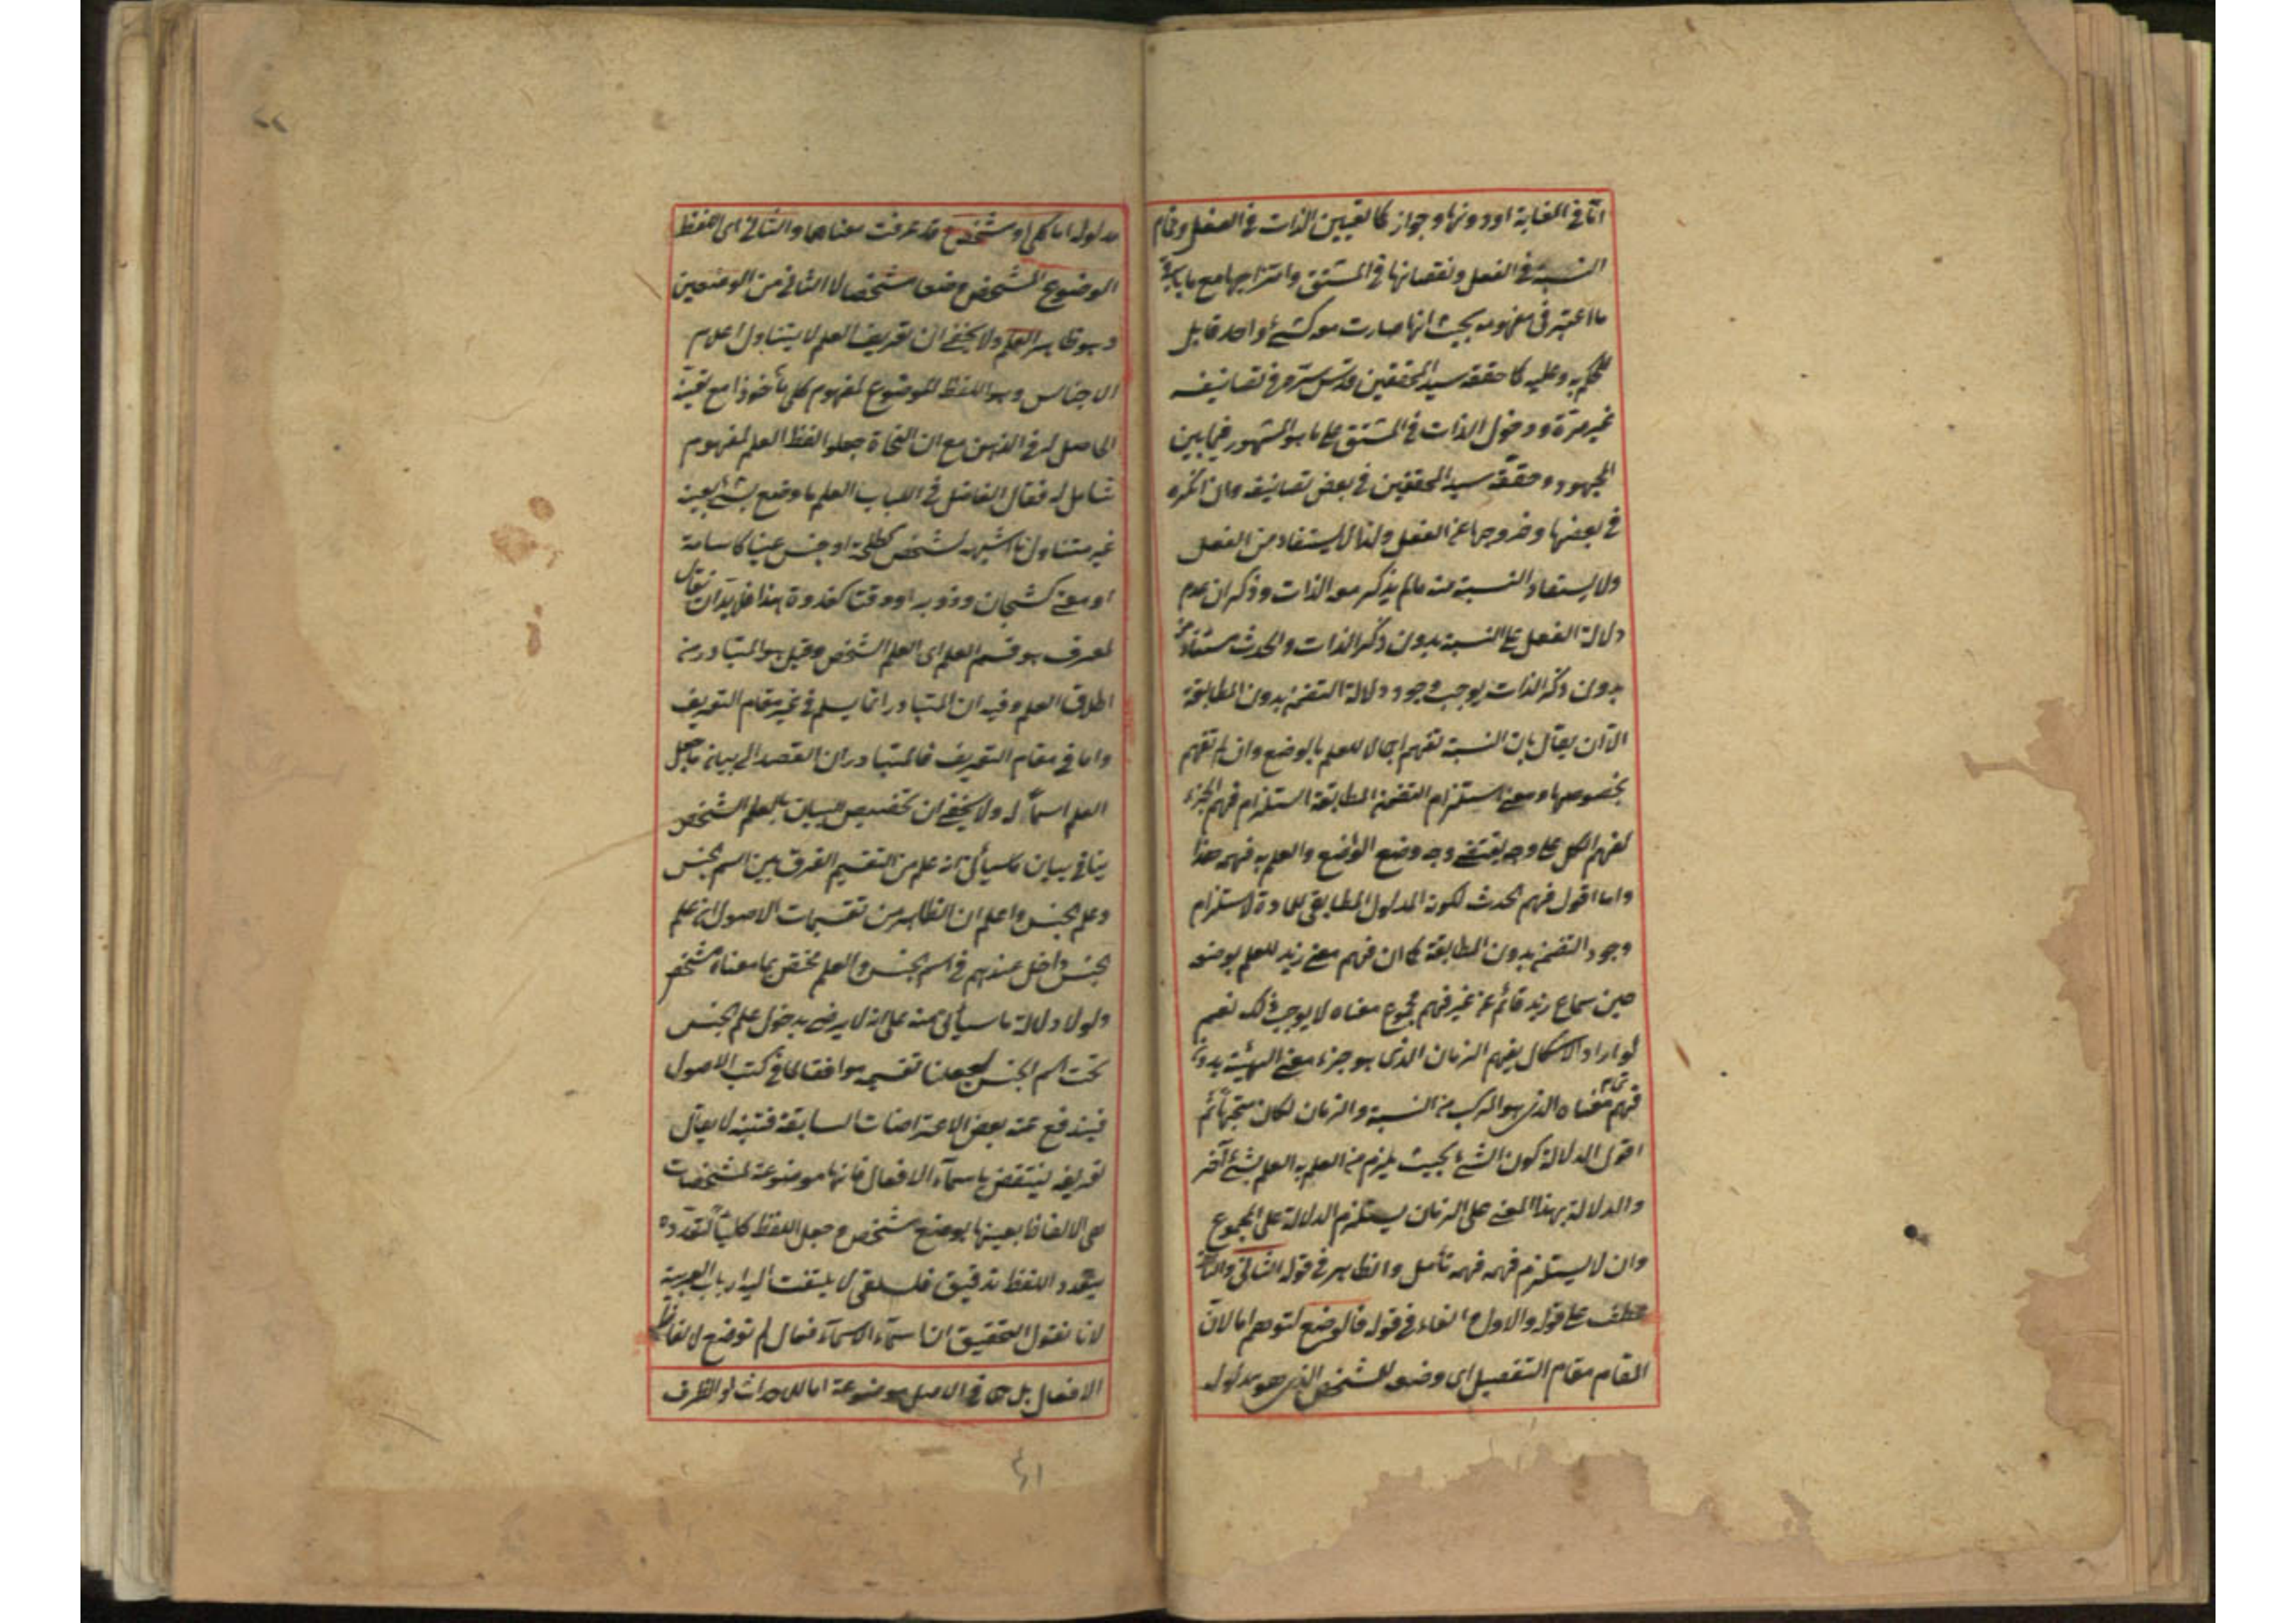 اما في الغاية او دونها وجواز كما لتعيين الذات في الفعل وتمام
النسبة في الفعل ونقصانها في المشتق وامتزاجها مع
ما اعتبر في مفهومه بحيث انها صارت معه كشئ واحد قابل
للحكم به وعليه كما حققه سيد المحققين قدس سره في تصانيفه
غير مرة ودخول الذات في المشتق على ما هو المشهور فيما بين
الجمهور وحققه سيد المحققين في بعض تصانيفه وان انكره
في بعضها وخروجها عن الفعل ولذا لا يستفاد من الفعل
ولا يستفاد النسبة منه ما لم يذكر معه الذات وذكر ان عدم
دلالة الفعل على النسبة بدون ذكر الذات والحدث مستفاد منه
بدون ذكر الذات يوجب وجود دلالة التضمن بدون المطابقة
الا ان يقال بان النسبة تفهم اجمالا للعلم بالوضع وان لم تفهم
بخصوصها ومعنى استلزام التضمن المطابقة استلزام فهم الجزء
لفهم الكل على وجه يقتضيه وجه وضع الواضع والعلم به فهمه هذا
واما اقول فهم الحدث لكونه المدلول المطابقي للمادة لا يستلزم
وجود التضمن بدون المطابقة كما ان فهم معنى زيد للعلم بوضعه
حين سماع زيد قائم من غير فهم مجموع معناه لا يوجب ذلك نعم
لو اراد الاشكال بفهم الزمان الذى هو جزء معنى الهيئة بدون
فهم تمام معناه الذى هو المركب من النسبة والزمان لكان متجها ثم
اقول الدلالة كون الشئ بحيث يلزم من العلم به العلم بشئ آخر
والدلالة بهذا المعنى على الزمان يستلزم الدلالة على المجموع
وان لا يستلزم فهمه فهمه تأمل والظاهر في قوله الثاني والثاني
عطف على قوله والاول الفاء في قوله فالوضع لتوهم اما لان
المقام مقام التفصيل اى وضعه للمشخص الذى هو مدلوله
مدلوله اما كلى او مشخص قد عرفت معناهما والثاني اى اللفظ
الموضوع المشخص وضعا مشخصا لا الثاني من الوضعين
وهو ظاهر العلم ولا يخفى ان تعريف العلم لا يتناول اعلام
الاجناس وهو اللفظ الموضوع لمفهوم كلى مأخوذا مع تعينه
الحاصل له في الذهن مع ان النحاة جعلوا لفظ العلم لمفهوم
شامل له فقال الفاضل في اللباب العلم ما وضع لشئ بعينه
غير متناول ما اشبهه لشخص كطلحة او جنس عينا كاسامة
او معنى كسبحان وزوبر او وقتا كغدوة هذا فلا بد ان يقال
المعرف هو قسم العلم اى العلم الشخص وقيل هو المتبادر من
اطلاق العلم وفيه ان المتبادر انما يسلم في غير مقام التعريف
واما في مقام التعريف فالمتبادر ان القصد الى بيان ما جعل
العلم اسما له ولا يخفى ان تخصيص البيان بالعلم الشخص
ينافي بيان ما سيأتى انه علم من التقسيم الفرق بين اسم الجنس
وعلم الجنس واعلم ان الظاهر من تقسيمات الاصول ان علم
الجنس داخل عندهم في اسم الجنس والعلم مختص بما معناه مشخص
ولولا دلالة ما سيأتى منه على انه لا يرضى بدخول علم الجنس
تحت اسم الجنس لجعلنا تقسيمه موافقا لما في كتب الاصول
فيندفع عنه بعض الاعتراضات السابقة فتنبه لا يقال
تعريفه ينتقض باسماء الافعال فانها موضوعة لمشخصات
هى الالفاظ بعينها بوضع مشخص وجعل اللفظ كليا لتعدده
بتعدد اللفظ تدقيق فلسفى لا يلتفت اليه ارباب العربية
لانا نقول التحقيق ان اسماء الافعال لم توضع لالفاظ
الافعال بل هى في الاصل موضوعة اما للاحداث او الظرف